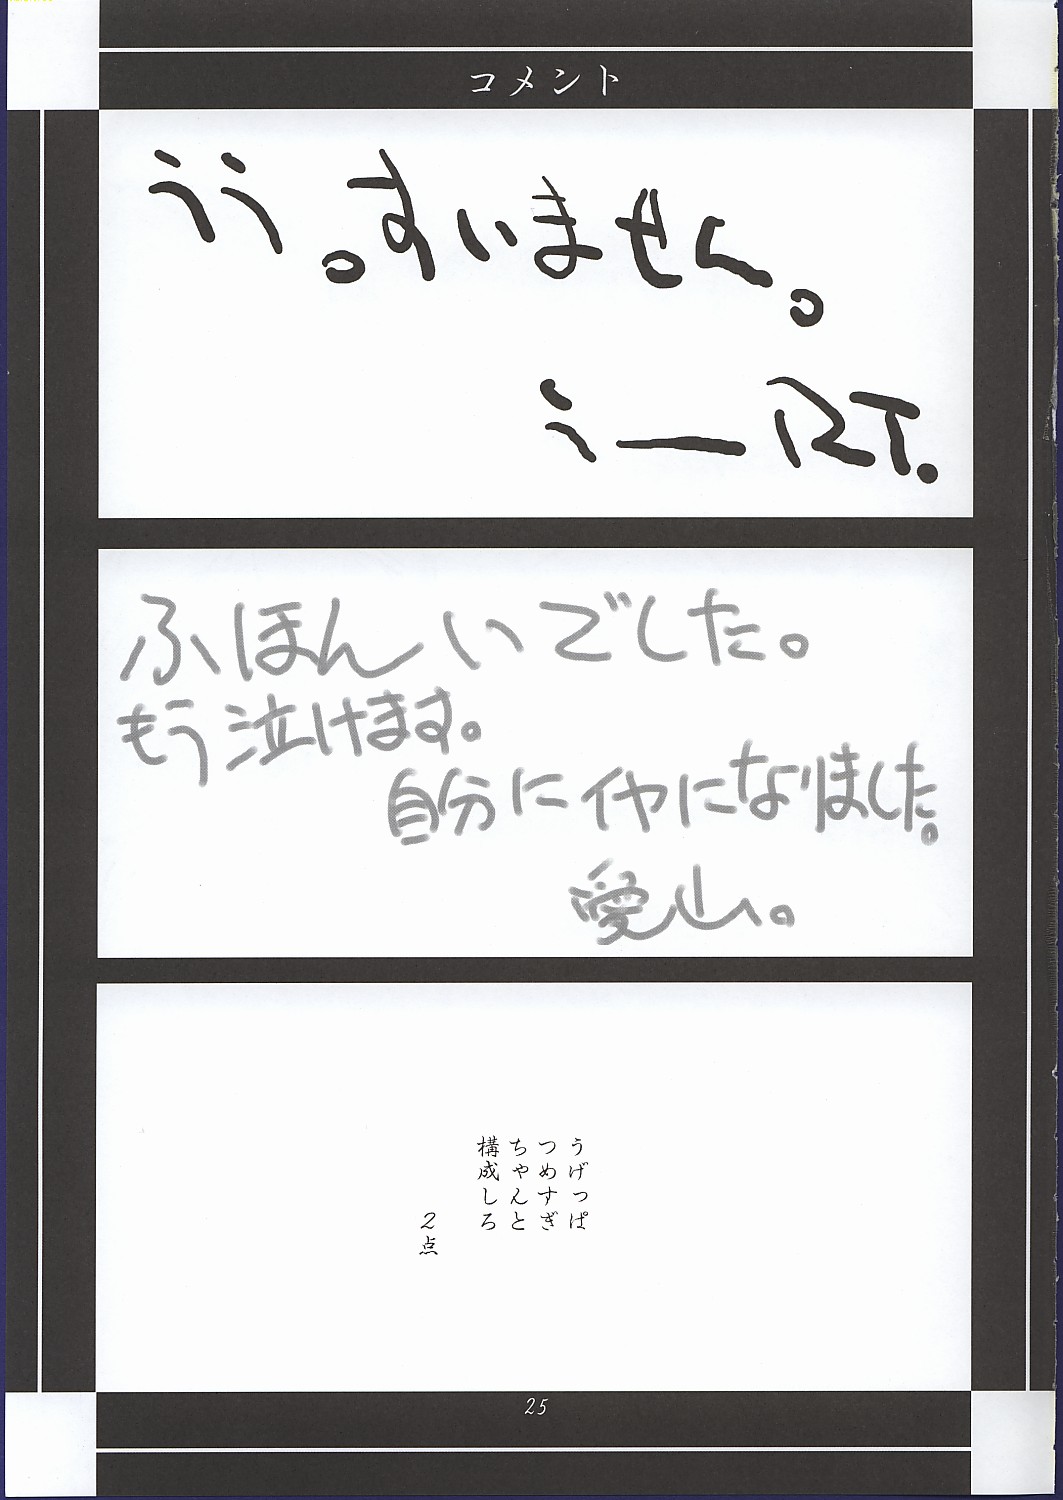 コメント
うう。すいません。
うーRT.
ふほんいでした。
もう泣けます。
自分にイヤになりました。
愛山。
うげっぱ
つめすぎ
ちゃんと
構成しろ
2点
25